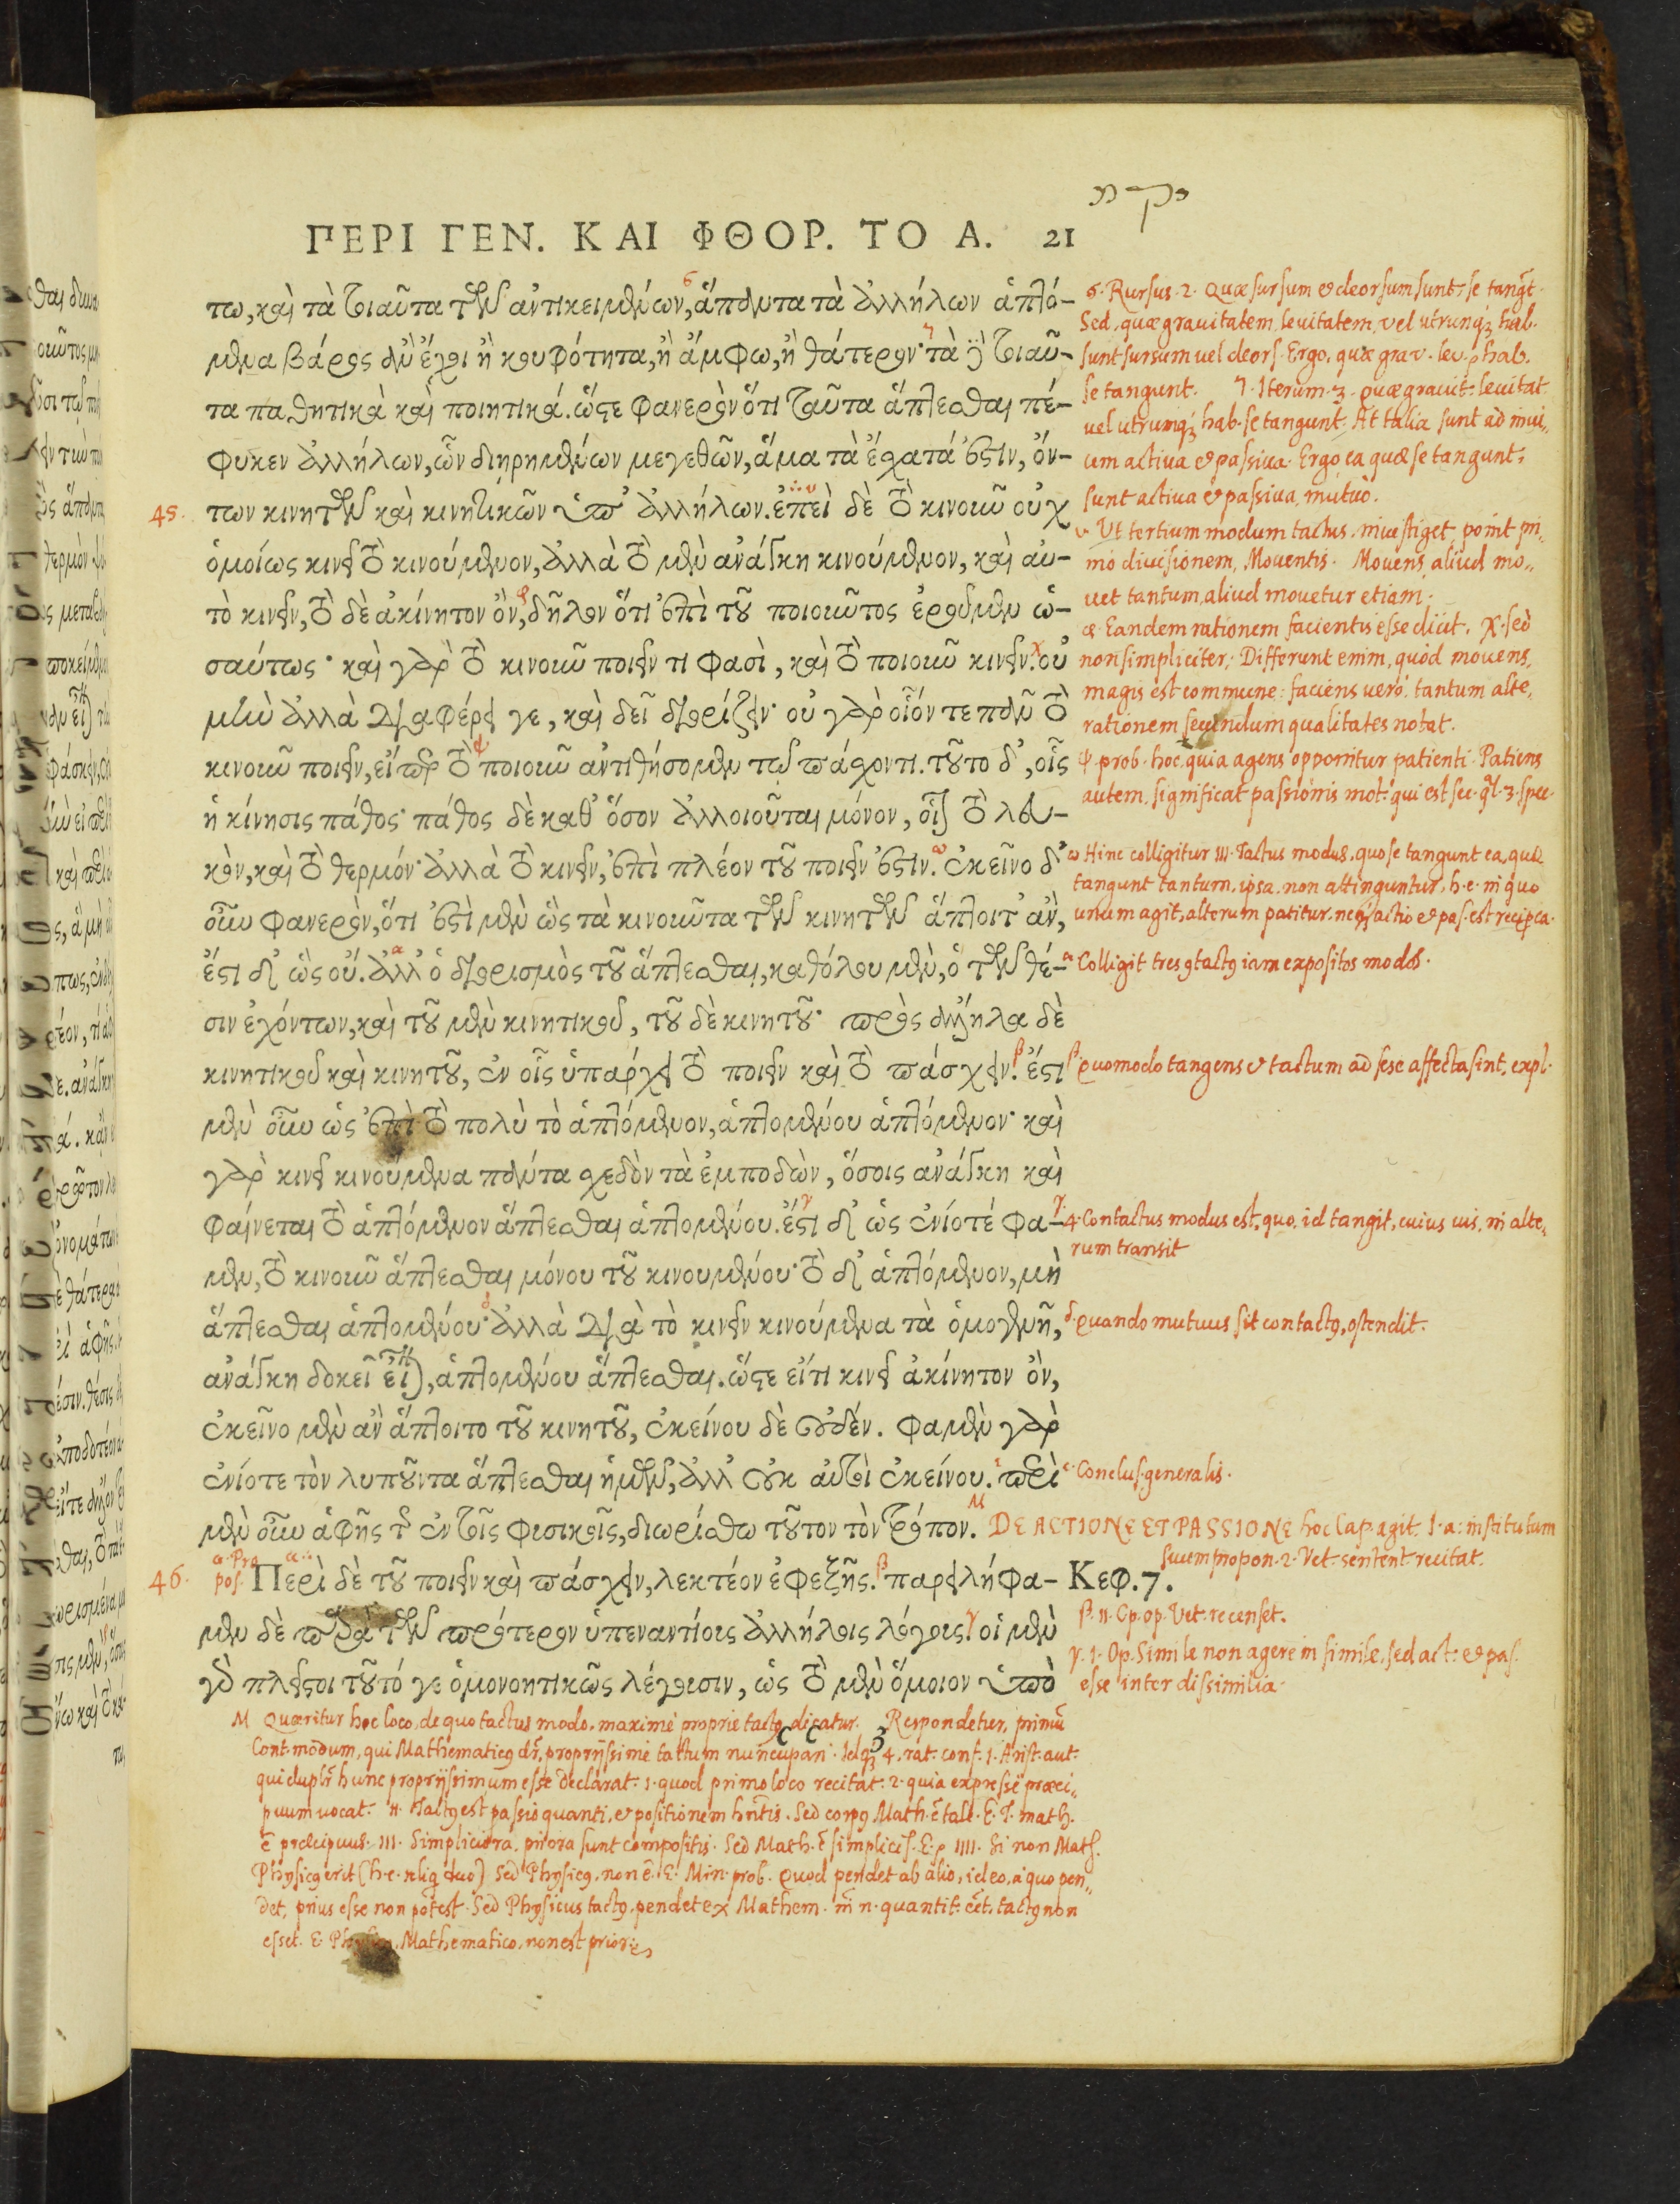 ΠΕΡΙ ΓΕΝ. ΚΑΙ ΦΘΟΡ. ΤΟ Α. 21
τω, καὶ τὰ τοιαῦτα τῶν ἀντικειμένων, ἅπαντα τὰ ἀλλήλων ἁπτό-
μενα βάρος ἂν ἔχοι ἢ κουφότητα, ἢ ἄμφω, ἢ θάτερον· τὰ δὲ τοιαῦ-
τα παθητικὰ καὶ ποιητικά. ὥστε φανερὸν ὅτι ταῦτα ἅπτεσθαι πέ-
φυκεν ἀλλήλων, ὧν διηρημένων μεγεθῶν, ἅμα τὰ ἔσχατά ἐστιν, ὄν-
45. των κινητῶν καὶ κινητικῶν ὑπ' ἀλλήλων. ἐπεὶ δὲ τὸ κινοῦν οὐχ
ὁμοίως κινεῖ τὸ κινούμενον, ἀλλὰ τὸ μὲν ἀνάγκη κινούμενον, καὶ αὐ-
τὸ κινεῖν, τὸ δὲ ἀκίνητον ὂν, δῆλον ὅτι ἐπὶ τοῦ ποιοῦντος ἐροῦμεν ὡ-
σαύτως· καὶ γὰρ τὸ κινοῦν ποιεῖν τι φασὶ, καὶ τὸ ποιοῦν κινεῖν. οὐ
μὴν ἀλλὰ διαφέρει γε, καὶ δεῖ διορίζειν· οὐ γὰρ οἷόν τε πᾶν τὸ
κινοῦν ποιεῖν, εἴπερ τὸ ποιοῦν ἀντιθήσομεν τῷ πάσχοντι. τοῦτο δ', οἷς
ἡ κίνησις πάθος· πάθος δὲ καθ' ὅσον ἀλλοιοῦται μόνον, οἷον τὸ λευ-
κὸν, καὶ τὸ θερμόν· ἀλλὰ τὸ κινεῖν, ἐπὶ πλέον τοῦ ποιεῖν ἐστιν. ἐκεῖνο δ'
οὖν φανερὸν, ὅτι ἔστι μὲν ὡς τὰ κινοῦντα τῶν κινητῶν ἅπτοιτ' ἂν,
ἔστι δ' ὡς οὔ. ἀλλ' ὁ διορισμὸς τοῦ ἅπτεσθαι, καθόλου μὲν, ὁ τῶν θέ-
σιν ἐχόντων, καὶ τοῦ μὲν κινητικοῦ, τοῦ δὲ κινητοῦ· πρὸς ἄλληλα δὲ
κινητικοῦ καὶ κινητοῦ, ἐν οἷς ὑπάρχει τὸ ποιεῖν καὶ τὸ πάσχειν. ἔστι
μὲν οὖν ὡς ἐπὶ τὸ πολὺ τὸ ἁπτόμενον, ἁπτομένου ἁπτόμενον· καὶ
γὰρ κινεῖ κινούμενα πάντα σχεδὸν τὰ ἐμποδὼν, ὅσοις ἀνάγκη καὶ
φαίνεται τὸ ἁπτόμενον ἅπτεσθαι ἁπτομένου. ἔστι δ' ὡς ἐνίοτέ φα-
μεν, τὸ κινοῦν ἅπτεσθαι μόνου τοῦ κινουμένου· τὸ δ' ἁπτόμενον, μὴ
ἅπτεσθαι ἁπτομένου· ἀλλὰ διὰ τὸ κινεῖν κινούμενα τὰ ὁμογενῆ,
ἀνάγκη δοκεῖ εἶναι, ἁπτομένου ἅπτεσθαι. ὥστε εἴτι κινεῖ ἀκίνητον ὂν,
ἐκεῖνο μὲν ἂν ἅπτοιτο τοῦ κινητοῦ, ἐκείνου δὲ οὐδέν. φαμὲν γὰρ
ἐνίοτε τὸν λυποῦντα ἅπτεσθαι ἡμῶν, ἀλλ' οὐκ αὐτοὶ ἐκείνου. περὶ
μὲν οὖν ἁφῆς τῆς ἐν τοῖς φυσικοῖς, διωρίσθω τοῦτον τὸν τρόπον.
46. Περὶ δὲ τοῦ ποιεῖν καὶ πάσχειν, λεκτέον ἐφεξῆς. παρειλήφα- Κεφ. 7.
μεν δὲ παρὰ τῶν πρότερον ὑπεναντίους ἀλλήλοις λόγους. οἱ μὲν
γὰρ πλεῖστοι τοῦτό γε ὁμονοητικῶς λέγουσιν, ὡς τὸ μὲν ὅμοιον ὑπὸ
ϛ. Rursus. 2. Quæ sursum & deorsum sunt, se tangt.
Sed, quæ grauitatem, leuitatem, vel utrunq; hab.
sunt sursum vel deors. Ergo, quæ grav. leu. hab.
se tangunt. ꝫ. Iterum. 3. quæ grauit. leuitat
vel utrunq; hab. se tangunt. At talia sunt ad inui-
cem actiua & passiua. Ergo ea quæ se tangunt,
sunt actiua & passiua, mutuò.
υ. Ut tertium modum tactus, inuestiget, ponit pri-
mo diuisionem, Mouentis. Mouens aliud mo-
uet tantum, aliud mouetur etiam.
φ. Eandem rationem facientis esse dicit. χ. sed
non simpliciter; Differunt enim, quòd mouens,
magis est commune: faciens uerò, tantum alte-
rationem secundum qualitates notat.
ψ. prob. hoc, quia agens opponitur patienti. Patiens
autem, significat passionis mot. qui est sec. ql. 3. spec.
ω Hinc colligitur III. Tactus modus, quo se tangunt ea, quæ
tangunt tantum, ipsa, non attinguntur, h.e. in quo
unum agit, alterum patitur, neq; actio & pas. est recipca.
α Colligit tres 9tact9 iam expositos modos.
β. Quomodo tangens & tactum ad sese affecta sint, expl.
γ. 4. Contactus modus est, quo, id tangit, cuius uis, in alte-
rum transit
δ. Quando mutuus sit contact9, ostendit.
ε. Conclus. generalis.
DE ACTIONE ET PASSIONE hoc Cap. agit. 1. a: institutum
suum propon. 2. Vet. sentent. recitat.
α. Pro
pos.
β. II. Op. op. Vet. recenset.
γ. 1. Op. Simile non agere in simile, sed act. & pas.
esse inter dissimilia.
M Quæritur hoc loco, de quo tactus modo, maximè propriè tact9 dicatur. Respondetur, primũ
Cont. modum, qui Mathematic9 dr̃, propriissimè tactum nuncupari. Idq; 4. rat. conf. 1. Arist. aut.
qui duplr̃ hunc propriissimum esse declarat: 1. quod primo loco recitat: 2. quia expressè præci-
puum uocat. II. Tact9 est passio quanti, & positionem hñtis. Sed corp9 Math. ẽ tale. E. T. math.
ẽ præcipuus. III. Simpliciora, priora sunt compositis. Sed Math. ẽ simplicis. E. p IIII. Si non Math.
Physic9 erit (h.e. reliq duo) Sed Physic9, non ẽ. E. Min. prob. Quod pendet ab alio, id eo, à quo pen-
det, prius esse non potest. Sed Physicus tact9, pendet ex Mathem. n. quantit. tact9 non
esset. E. Mathematico, non est prior.